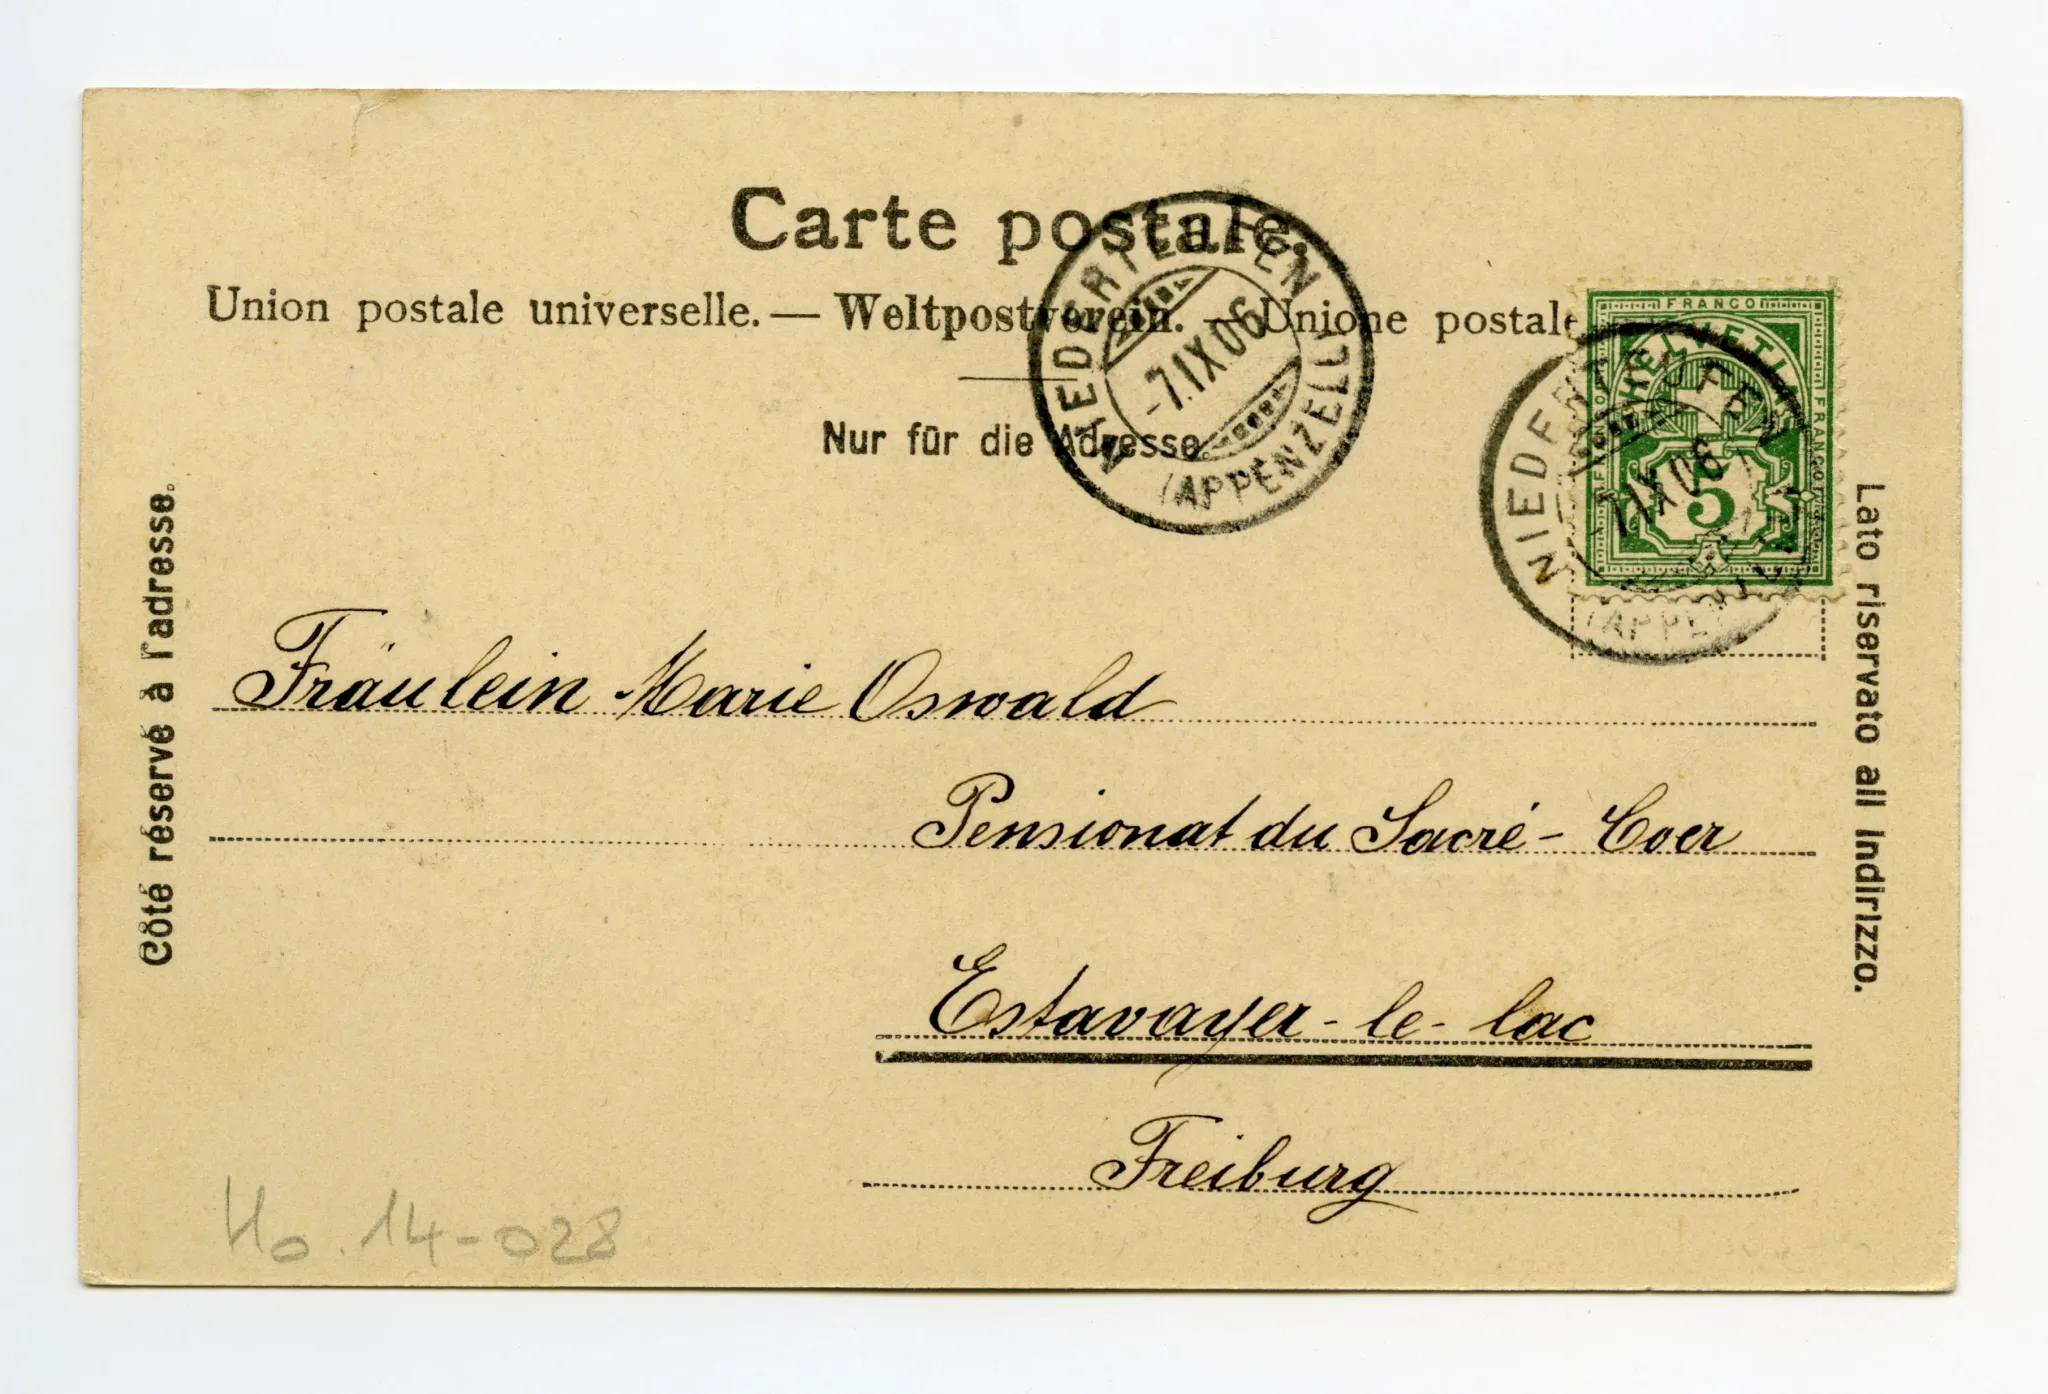 Carte postale.
Union postale universelle. — Weltpostverein. — Unione postale
Nur für die Adresse.
NIEDERTEUFEN
-7.IX.06
(APPENZELL)
FRANCO
HELVETIA
FRANCO
FRANCO
5
NIEDERTEUFEN
-7.IX.06
(APPENZELL)
Côté réservé à l'adresse.
Lato riservato all indirizzo.
Fräulein Marie Oswald
Pensionat du Sacré-Coer
Estavayer-le-lac
Freiburg
Ho. 14-028